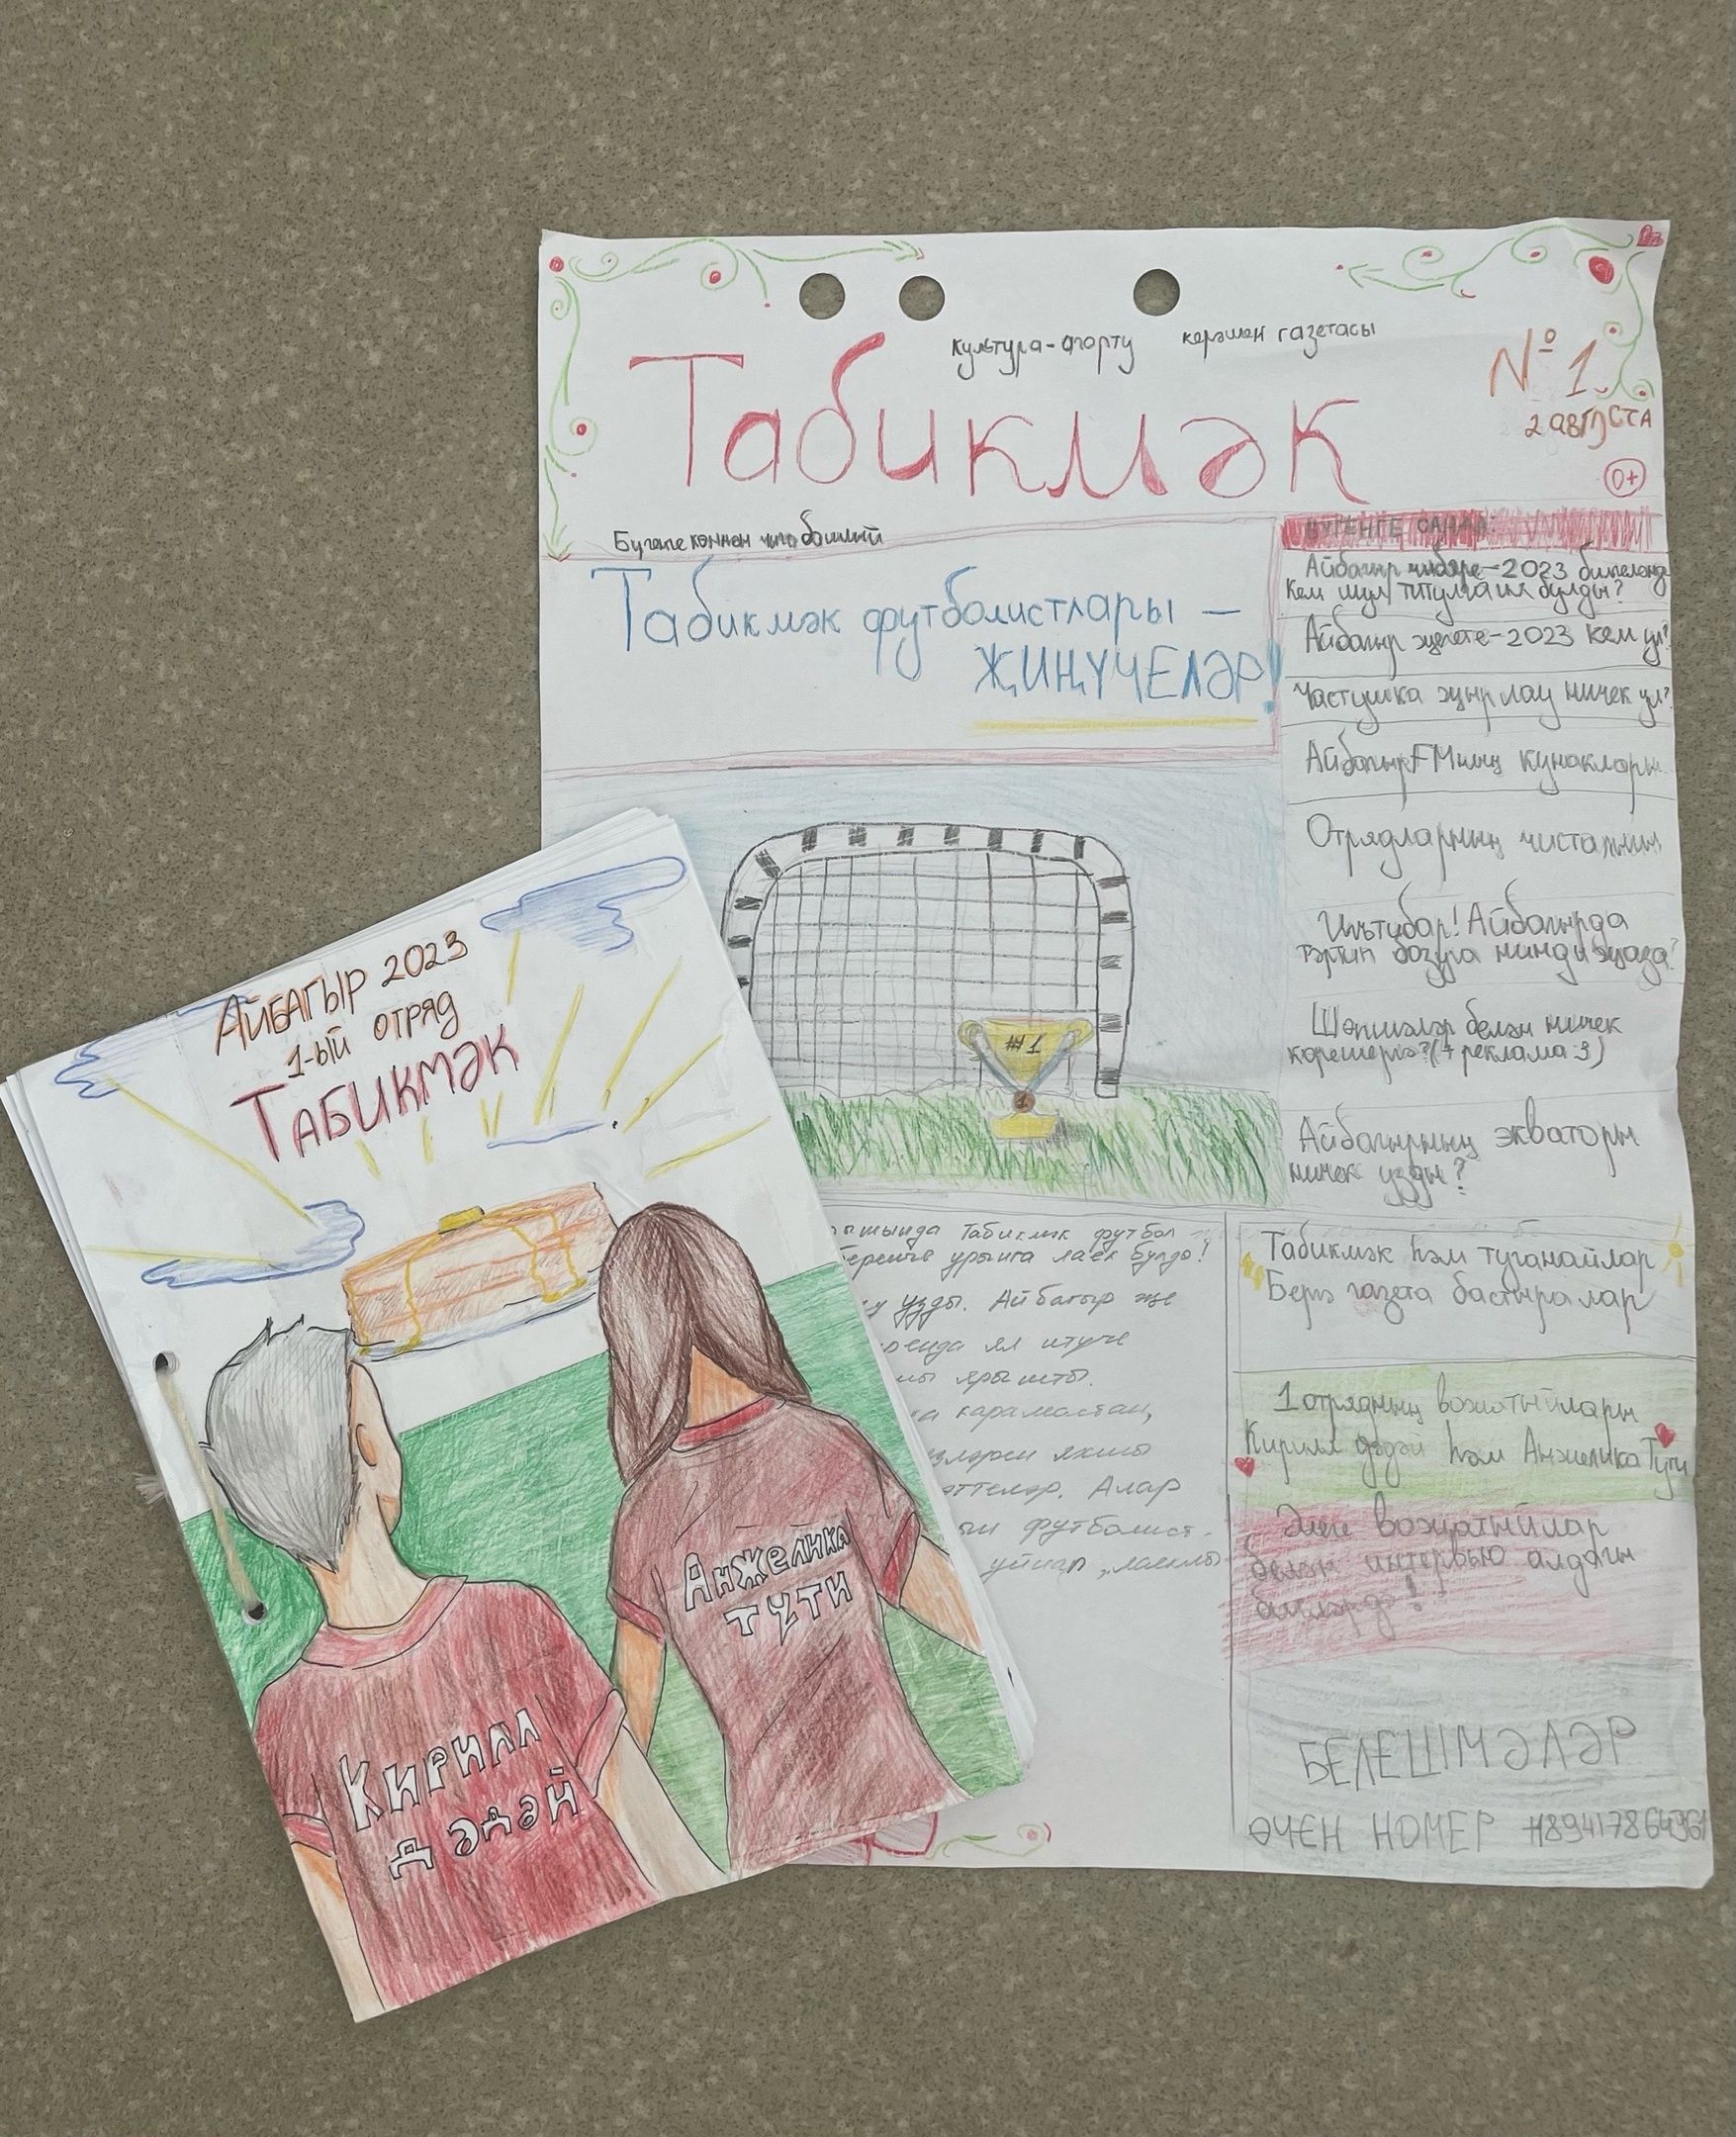 культура-спорту керәшен газетасы
Табикмәк
№1
2 АВГУСТА
0+
Бүгенге көннән чыга башлый
Табикмәк футболистлары –
ҖИҢҮЧЕЛӘР!
БҮГЕНГЕ САНДА:
Айбагыр чибәре-2023 билгеләнде
Кем шул титулга ия булды?
Айбагыр эҗгете-2023 кем ул?
Частушка җырлау ничек ул?
Айбагыр FMның кунаклары
Отрядларның чисталыгы
Игътибар! Айбагырда
тәртип бозуга нинди җәза?
Шөпшәләр белән ничек
көрешергә? (+ реклама :3)
Айбагырның экваторы
ничек узды?
#1
1
Табикмәк футбол
беренче урынга лаек булды!
узды. Айбагыр җәе
ял итүче
ярышты.
карамастан,
яхшы
Алар
футболист-
уйнап,
Табикмәк һәм туганайлар
Бергә газета бастыралар
1 отрядның вожатыйлары
Кирилл дәдәй һәм Анжелика Тути
Әлеге вожатыйлар
белән интервью алдагы
БЕЛЕШМӘЛӘР
ӨЧЕН НОМЕР
АЙБАГЫР 2023
1-ЫЙ ОТРЯД
ТАБИКМӘК
АНЖЕЛИКА
ТУТИ
КИРИЛЛ
ДӘДӘЙ